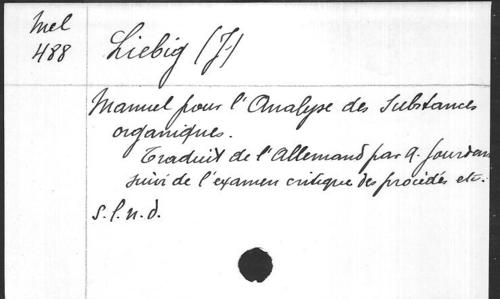 Mel
488
Liebig (J.)
Manuel pour l'Analyse des Substances
organiques.
Traduit de l'Allemand par A. Jourdan
suivi de l'examen critique des procédés etc.
s.l.n.d.